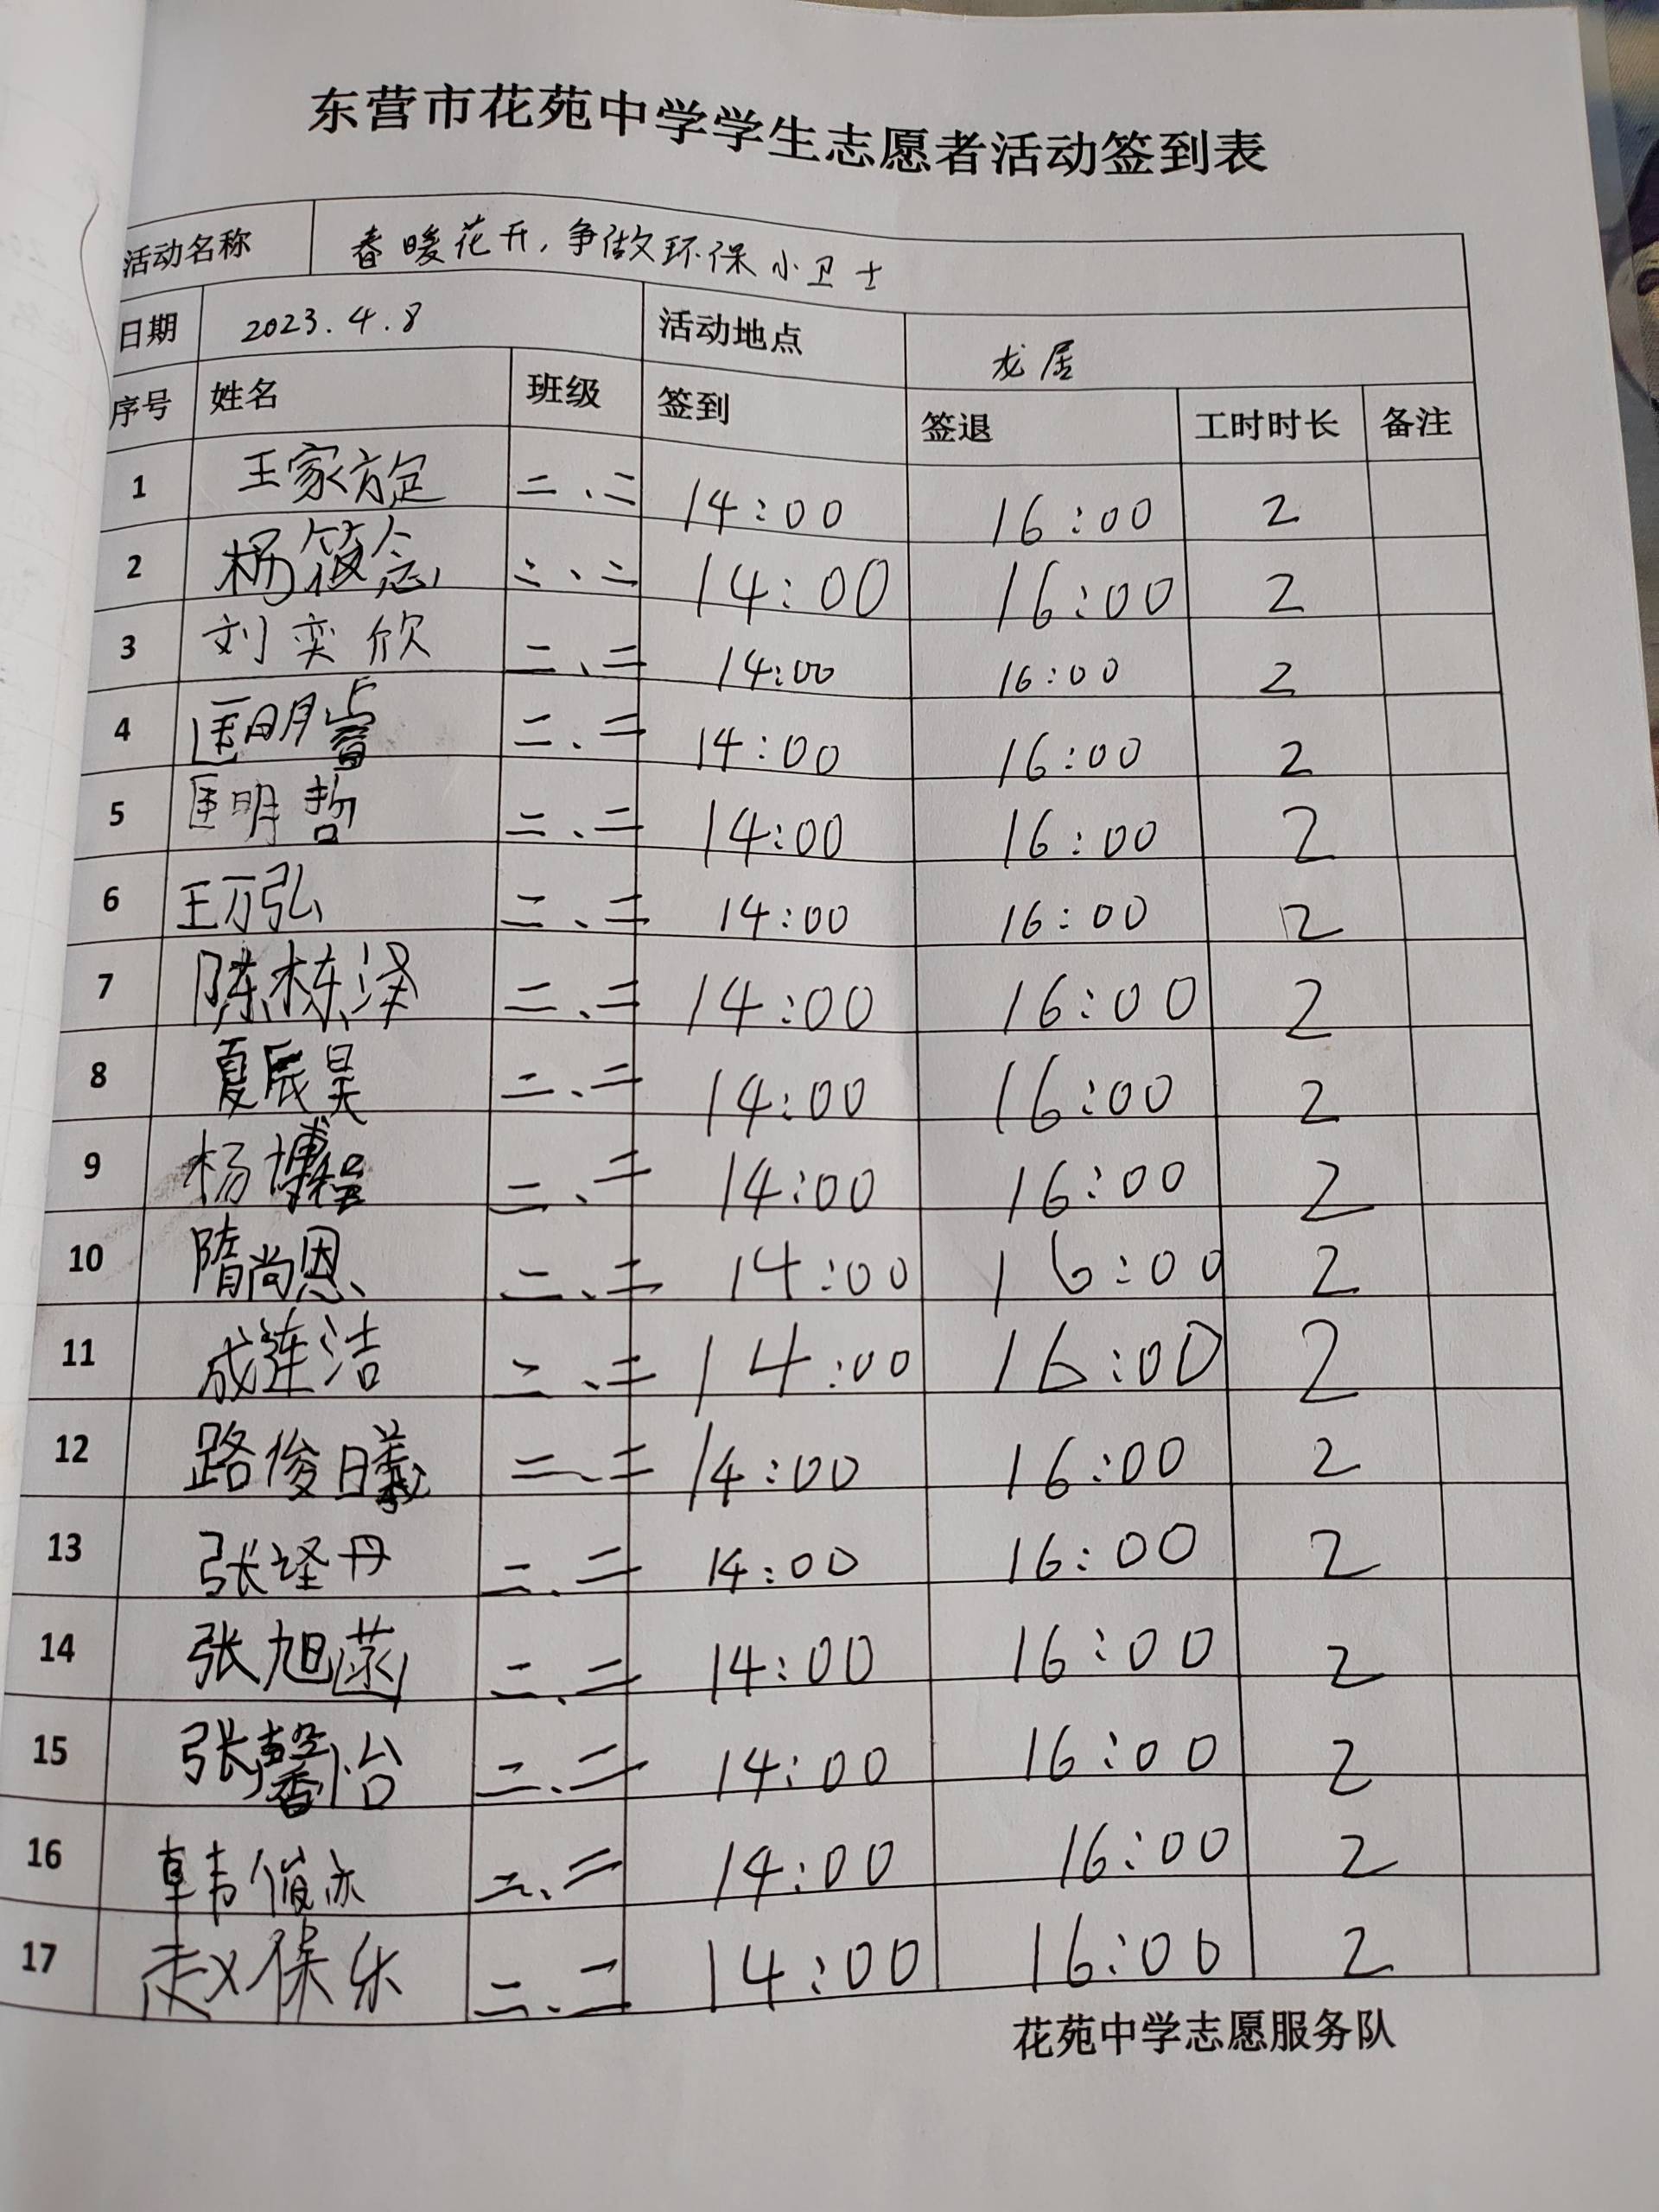 东营市花苑中学学生志愿者活动签到表
活动名称 春暖花开，争做环保小卫士
日期 2023.4.8 活动地点 龙居
序号 姓名 班级 签到 签退 工时时长 备注
1 王家旋 二、二 14:00 16:00 2
2 杨筱念 二、二 14:00 16:00 2
3 刘奕欣 二、二 14:00 16:00 2
4 匡明睿 二、二 14:00 16:00 2
5 匡明哲 二、二 14:00 16:00 2
6 王万弘 二、二 14:00 16:00 2
7 陈栋泽 二、二 14:00 16:00 2
8 夏辰昊 二、二 14:00 16:00 2
9 杨博程 二、二 14:00 16:00 2
10 隋尚恩 二、二 14:00 16:00 2
11 成连洁 二、二 14:00 16:00 2
12 路俊曦 二、二 14:00 16:00 2
13 张泾丹 二、二 14:00 16:00 2
14 张旭菡 二、二 14:00 16:00 2
15 张馨怡 二、二 14:00 16:00 2
16 韩俊亦 二、二 14:00 16:00 2
17 赵保乐 二、二 14:00 16:00 2
花苑中学志愿服务队